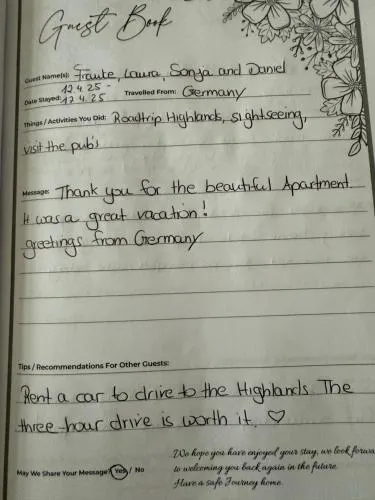 Guest Book
Guest Name(s): Fraute, Laura, Sonja and Daniel
12.4.25 -
Date Stayed: 17.4.25 Travelled From: Germany
Things / Activities You Did: Roadtrip Highlands, sightseeing,
visit the pub's
Message: Thank you for the beautiful Apartment.
It was a great vacation!
greetings from Germany
Tips / Recommendations For Other Guests:
Rent a car to drive to the Highlands. The
three-hour drive is worth it. ♡
We hope you have enjoyed your stay, we look forwa
May We Share Your Message? Yes / No to welcoming you back again in the future.
Have a safe Journey home.